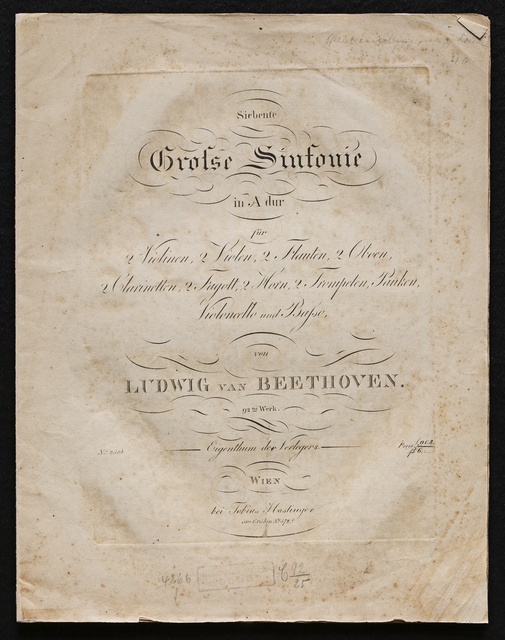 Siebente
Grosse Sinfonie
in A dur
für
2 Violinen, 2 Violen, 2 Flauten, 2 Oboen,
2 Clarinetten, 2 Fagott, 2 Horn, 2 Trompeten, Pauken,
Violoncello und Basso,
von
LUDWIG VAN BEETHOVEN.
92tes Werk.
Eigenthum des Verlegers
WIEN
bei Tobias Haslinger
4266
C 92
25